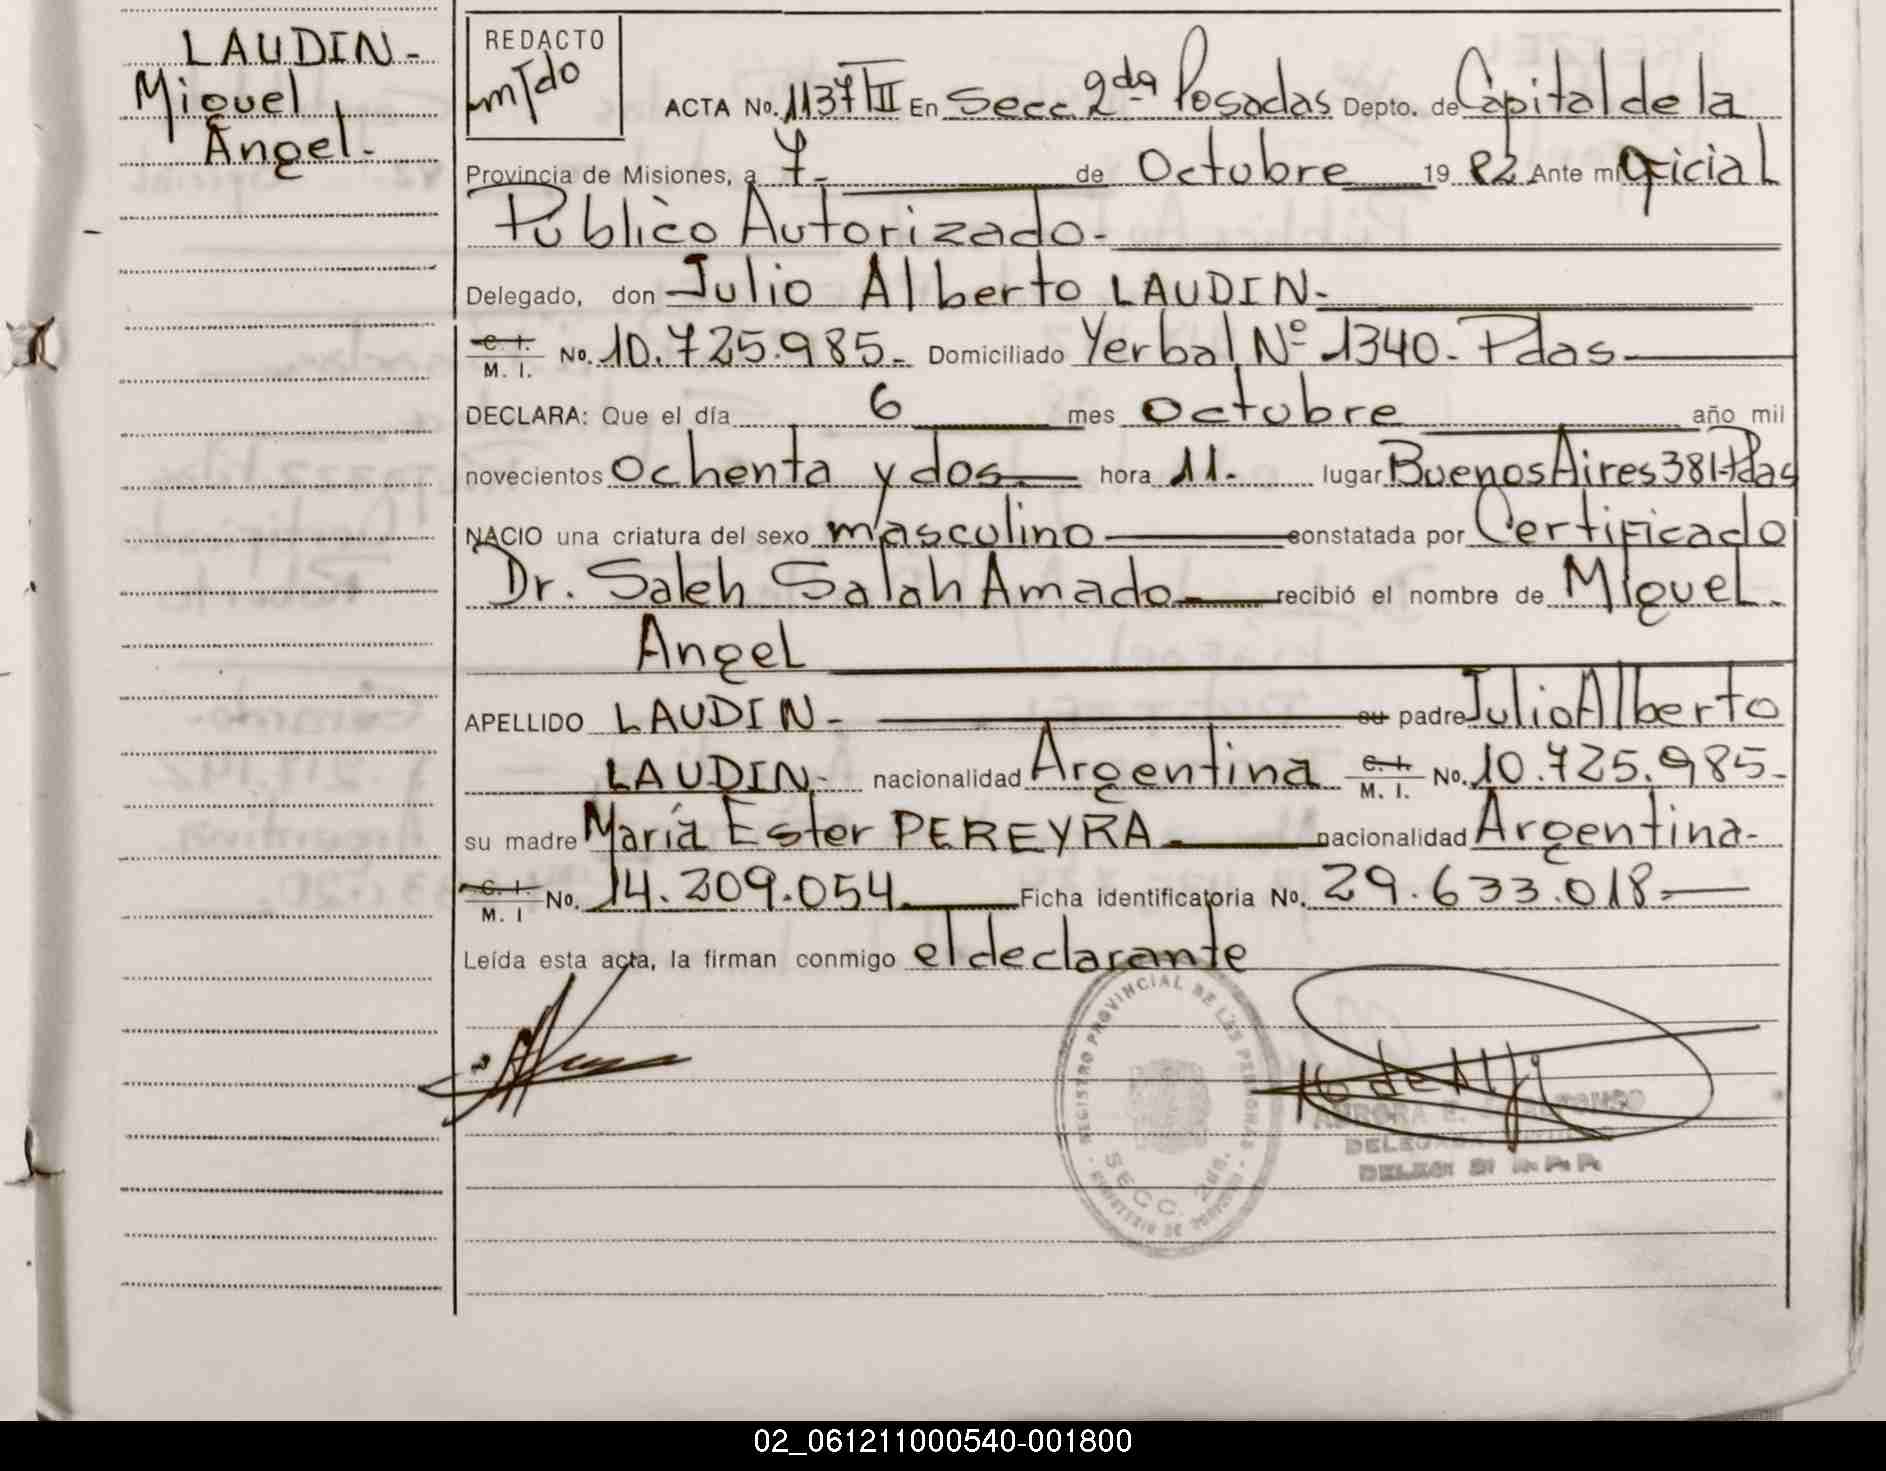 LAUDIN-
Miguel
Angel.
REDACTO
ACTA No. 1137 III En Secc. 2da Posadas Depto. de Capital de la
Provincia de Misiones, a 7- de Octubre 19 82 Ante mi Oficial
Público Autorizado-
Delegado, don Julio Alberto LAUDIN-
C. I.
M. I. No. 10.725.985- Domiciliado Yerbal Nº 1340- Pdas
DECLARA: Que el día 6 mes octubre año mil
novecientos ochenta y dos hora 11. lugar Buenos Aires 381-Pdas
NACIO una criatura del sexo masculino constatada por Certificado
Dr. Saleh Salah Amado recibió el nombre de Miguel
Angel
APELLIDO LAUDIN- su padre Julio Alberto
LAUDIN- nacionalidad Argentina C. I. M. I. No. 10.725.985-
su madre María Ester PEREYRA nacionalidad Argentina-
C. I. M. I No. 14.209.054. Ficha identificatoria No. 29.633.018-
Leída esta acta, la firman conmigo el declarante
REGISTRO PROVINCIAL DE LAS PERSONAS
SECC. 2da.
AURORA E.
02_061211000540-001800